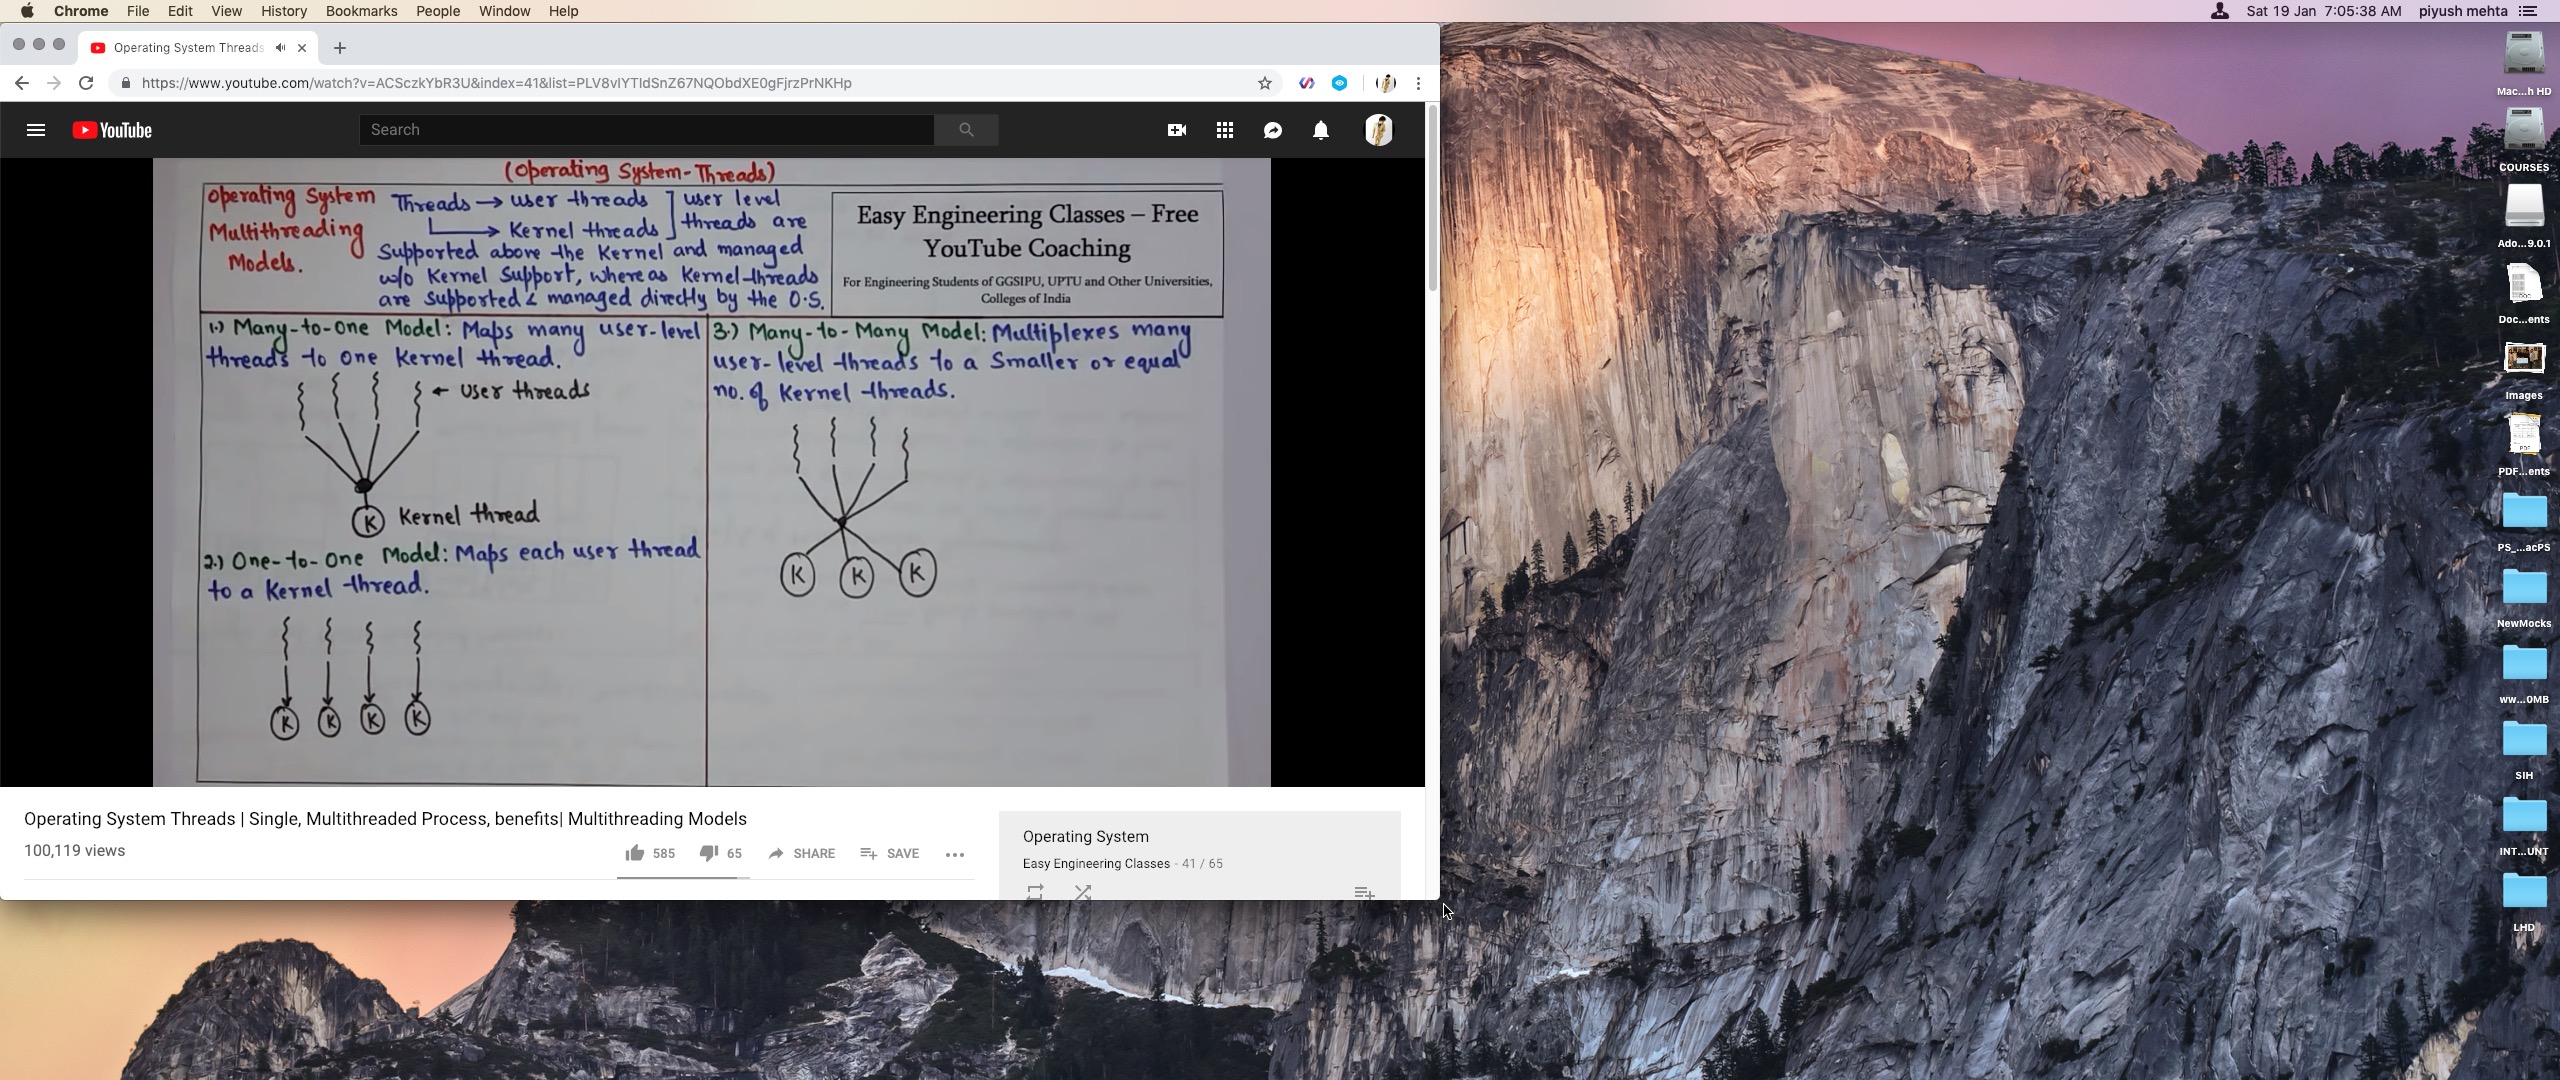 Chrome File Edit View History Bookmarks People Window Help
Sat 19 Jan 7:05:38 AM piyush mehta
Operating System Threads
https://www.youtube.com/watch?v=ACSczkYbR3U&index=41&list=PLV8vIYTIdSnZ67NQObdXE0gFjrzPrNKHp
YouTube
Search
(Operating System-Threads)
Operating System
Multithreading
Models.
Threads → user threads
→ Kernel threads
user level
threads are
Supported above the Kernel and managed
w/o Kernel Support, where as Kernel-threads
are supported & managed directly by the O.S.
Easy Engineering Classes – Free
YouTube Coaching
For Engineering Students of GGSIPU, UPTU and Other Universities,
Colleges of India
1.) Many-to-One Model: Maps many user-level
threads to one Kernel thread.
← User threads
K Kernel thread
2.) One-to-One Model: Maps each user thread
to a Kernel thread.
K K K K
3.) Many-to-Many Model: Multiplexes many
user-level threads to a Smaller or equal
no. of Kernel threads.
K K K
Operating System Threads | Single, Multithreaded Process, benefits| Multithreading Models
100,119 views
585 65 SHARE SAVE
Operating System
Easy Engineering Classes - 41 / 65
Mac...h HD
COURSES
Ado...9.0.1
Doc...ents
Images
PDF...ents
PS_...acPS
NewMocks
ww...0MB
SIH
INT...UNT
LHD